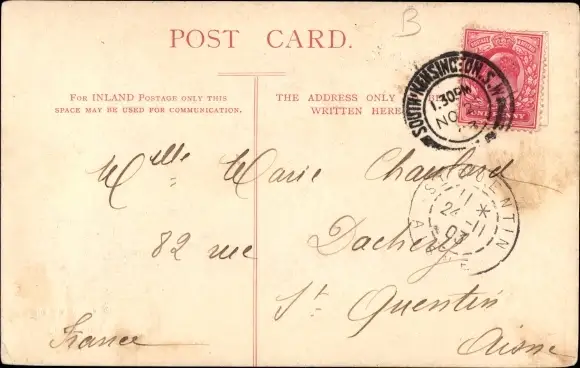 B
POST CARD.
FOR INLAND POSTAGE ONLY THIS
SPACE MAY BE USED FOR COMMUNICATION.
THE ADDRESS ONLY
WRITTEN HERE
SOUTH KENSINGTON. S.W.
1.30PM
NO
ONE PENNY
ST QUENTIN
24
11
03
AISNE
Mlle Marie
82 rue Dachery
St Quentin
Aisne
France